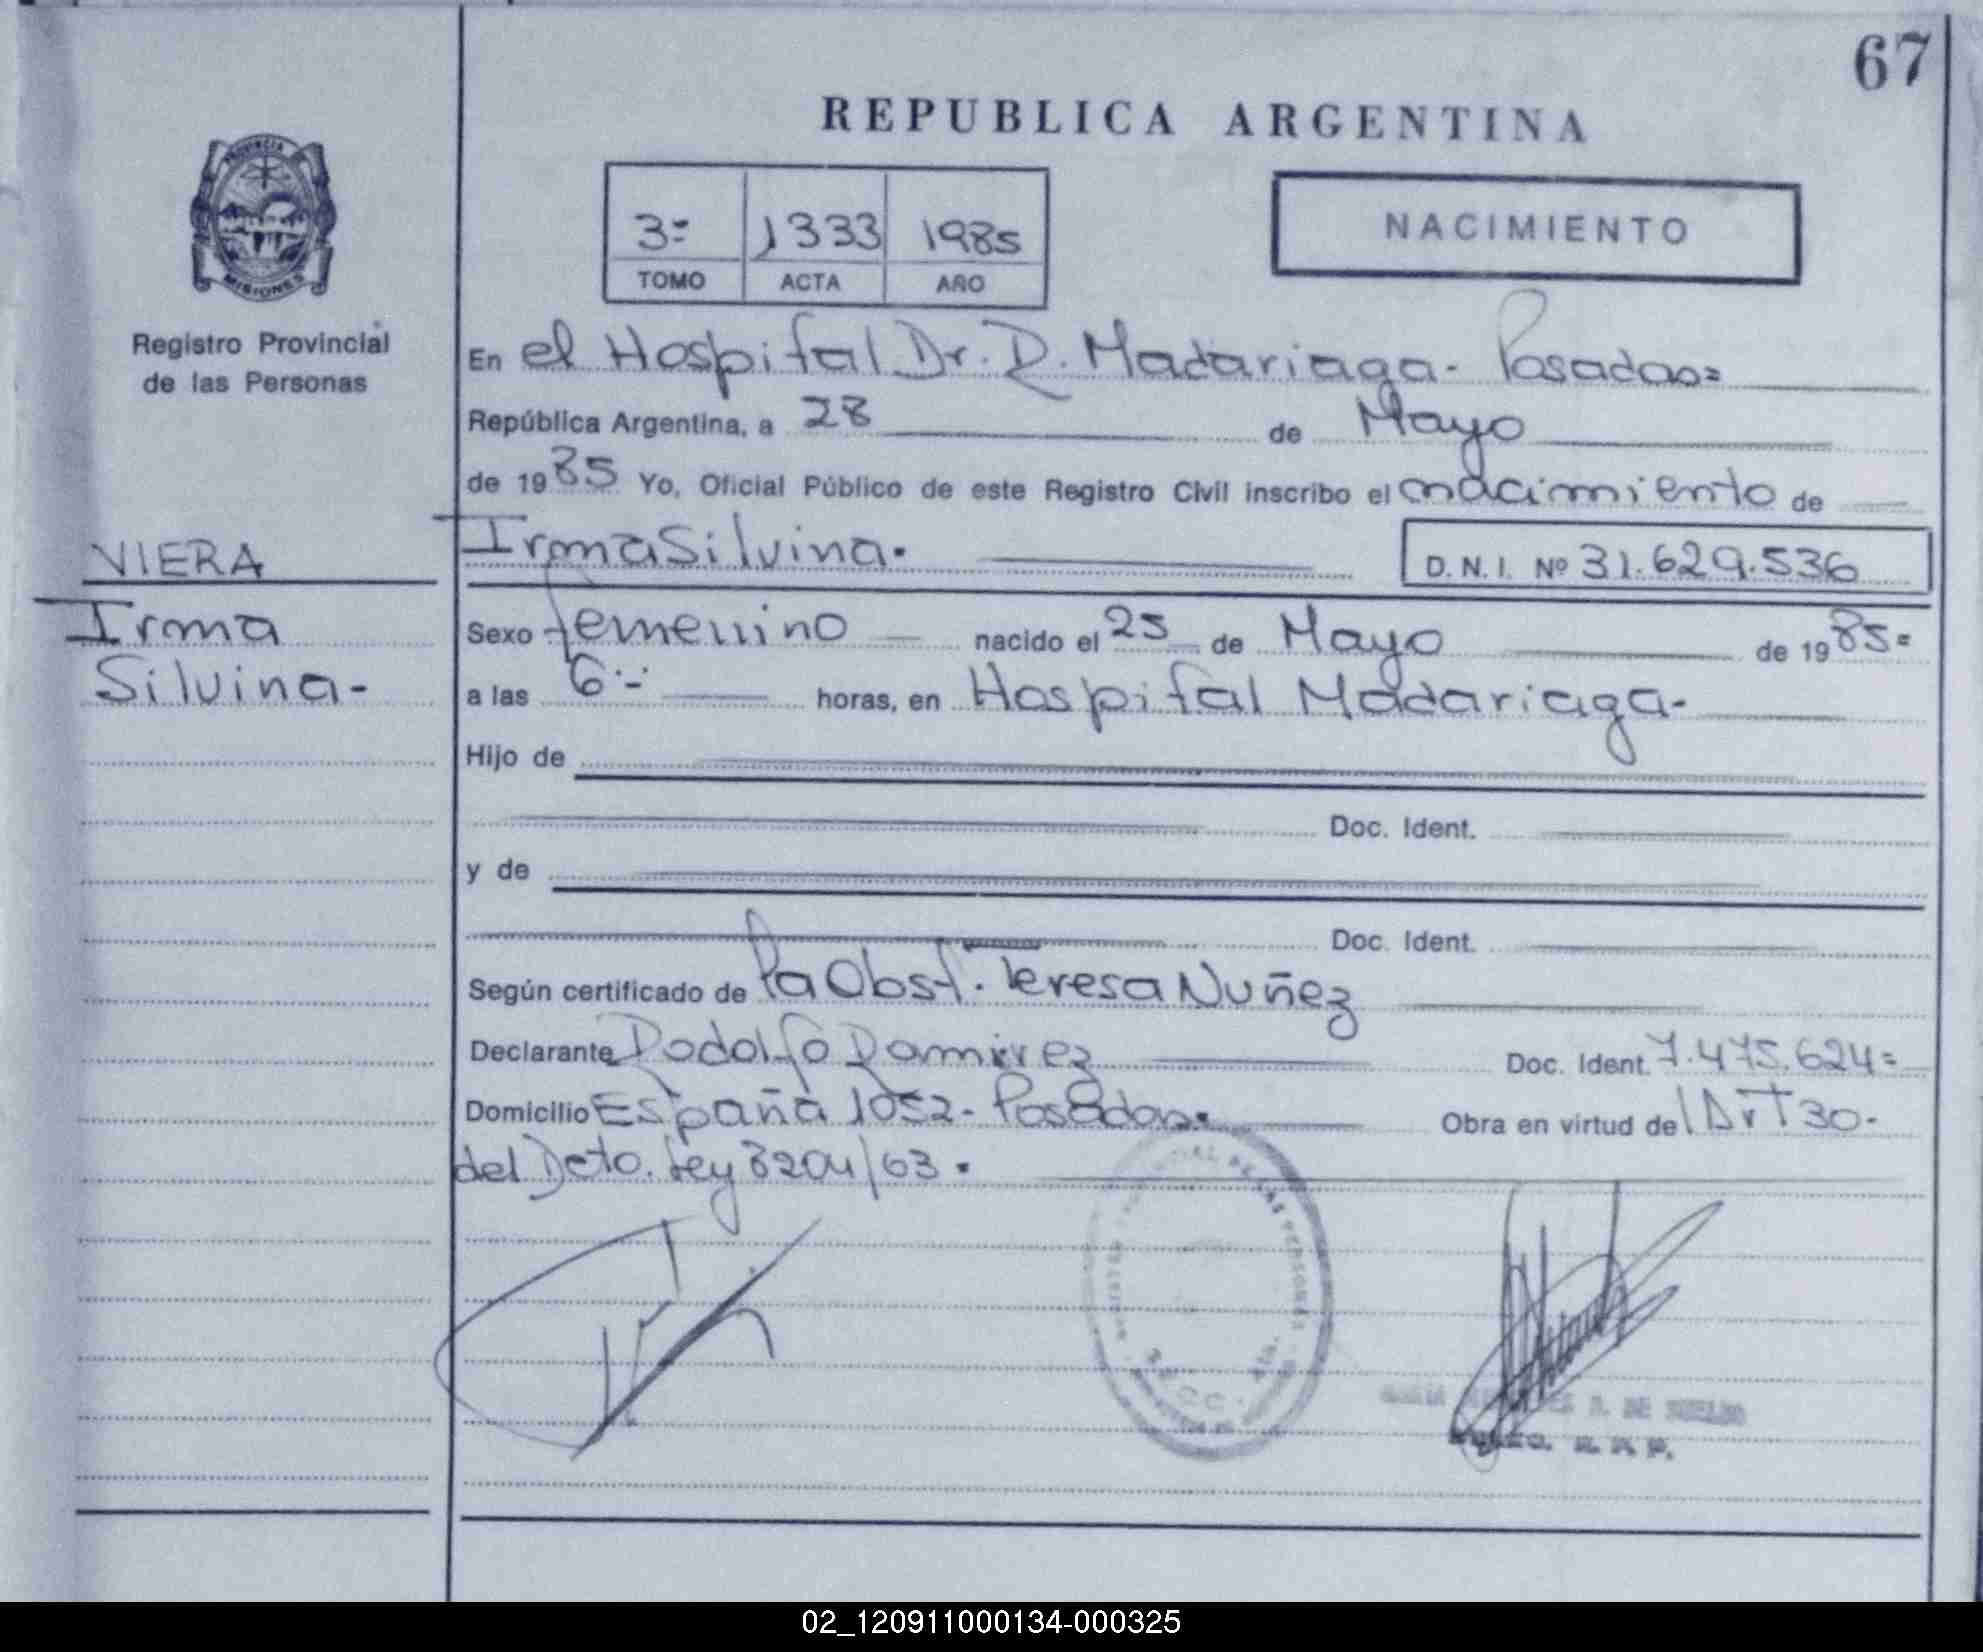 67
REPUBLICA ARGENTINA
PROVINCIA
MISIONES
Registro Provincial
de las Personas
3= 1333 1985
TOMO ACTA AÑO
NACIMIENTO
En el Hospital Dr. R. Madariaga - Posadas=
República Argentina, a 28 de Mayo
de 1985 Yo, Oficial Público de este Registro Civil inscribo el nacimiento de
VIERA
Irma
Silvina-
Irma Silvina.
D.N.I. Nº 31.629.536
Sexo femenino nacido el 25 de Mayo de 1985=
a las 6.- horas, en Hospital Madariaga-
Hijo de
Doc. Ident.
y de
Doc. Ident.
Según certificado de la Obst. Teresa Nuñez
Declarante Rodolfo Ramirez Doc. Ident. 7.475.624=
Domicilio España 1052- Posadas. Obra en virtud del Art 30-
del Dcto. Ley 8204/63.
DE LAS PERSONAS
D. DE
R. P. P.
02_120911000134-000325